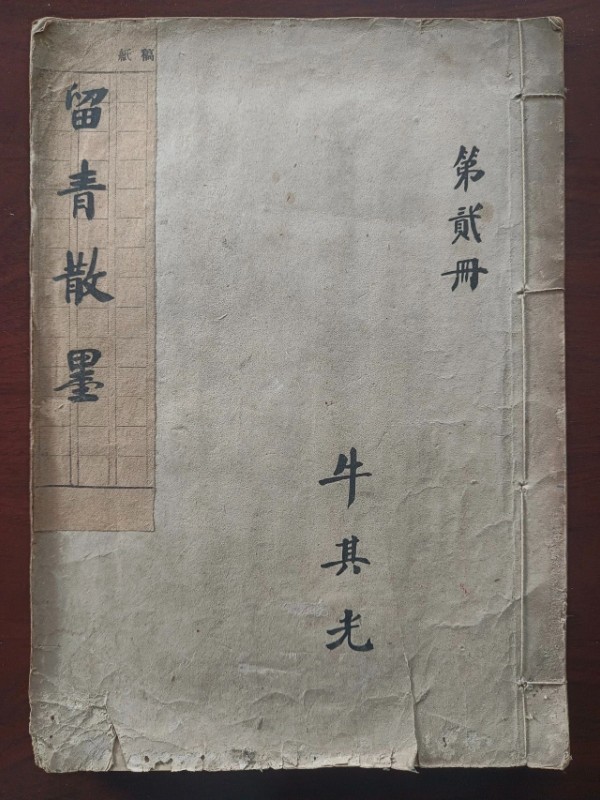 第貳冊
牛其光
留青散墨
稿紙